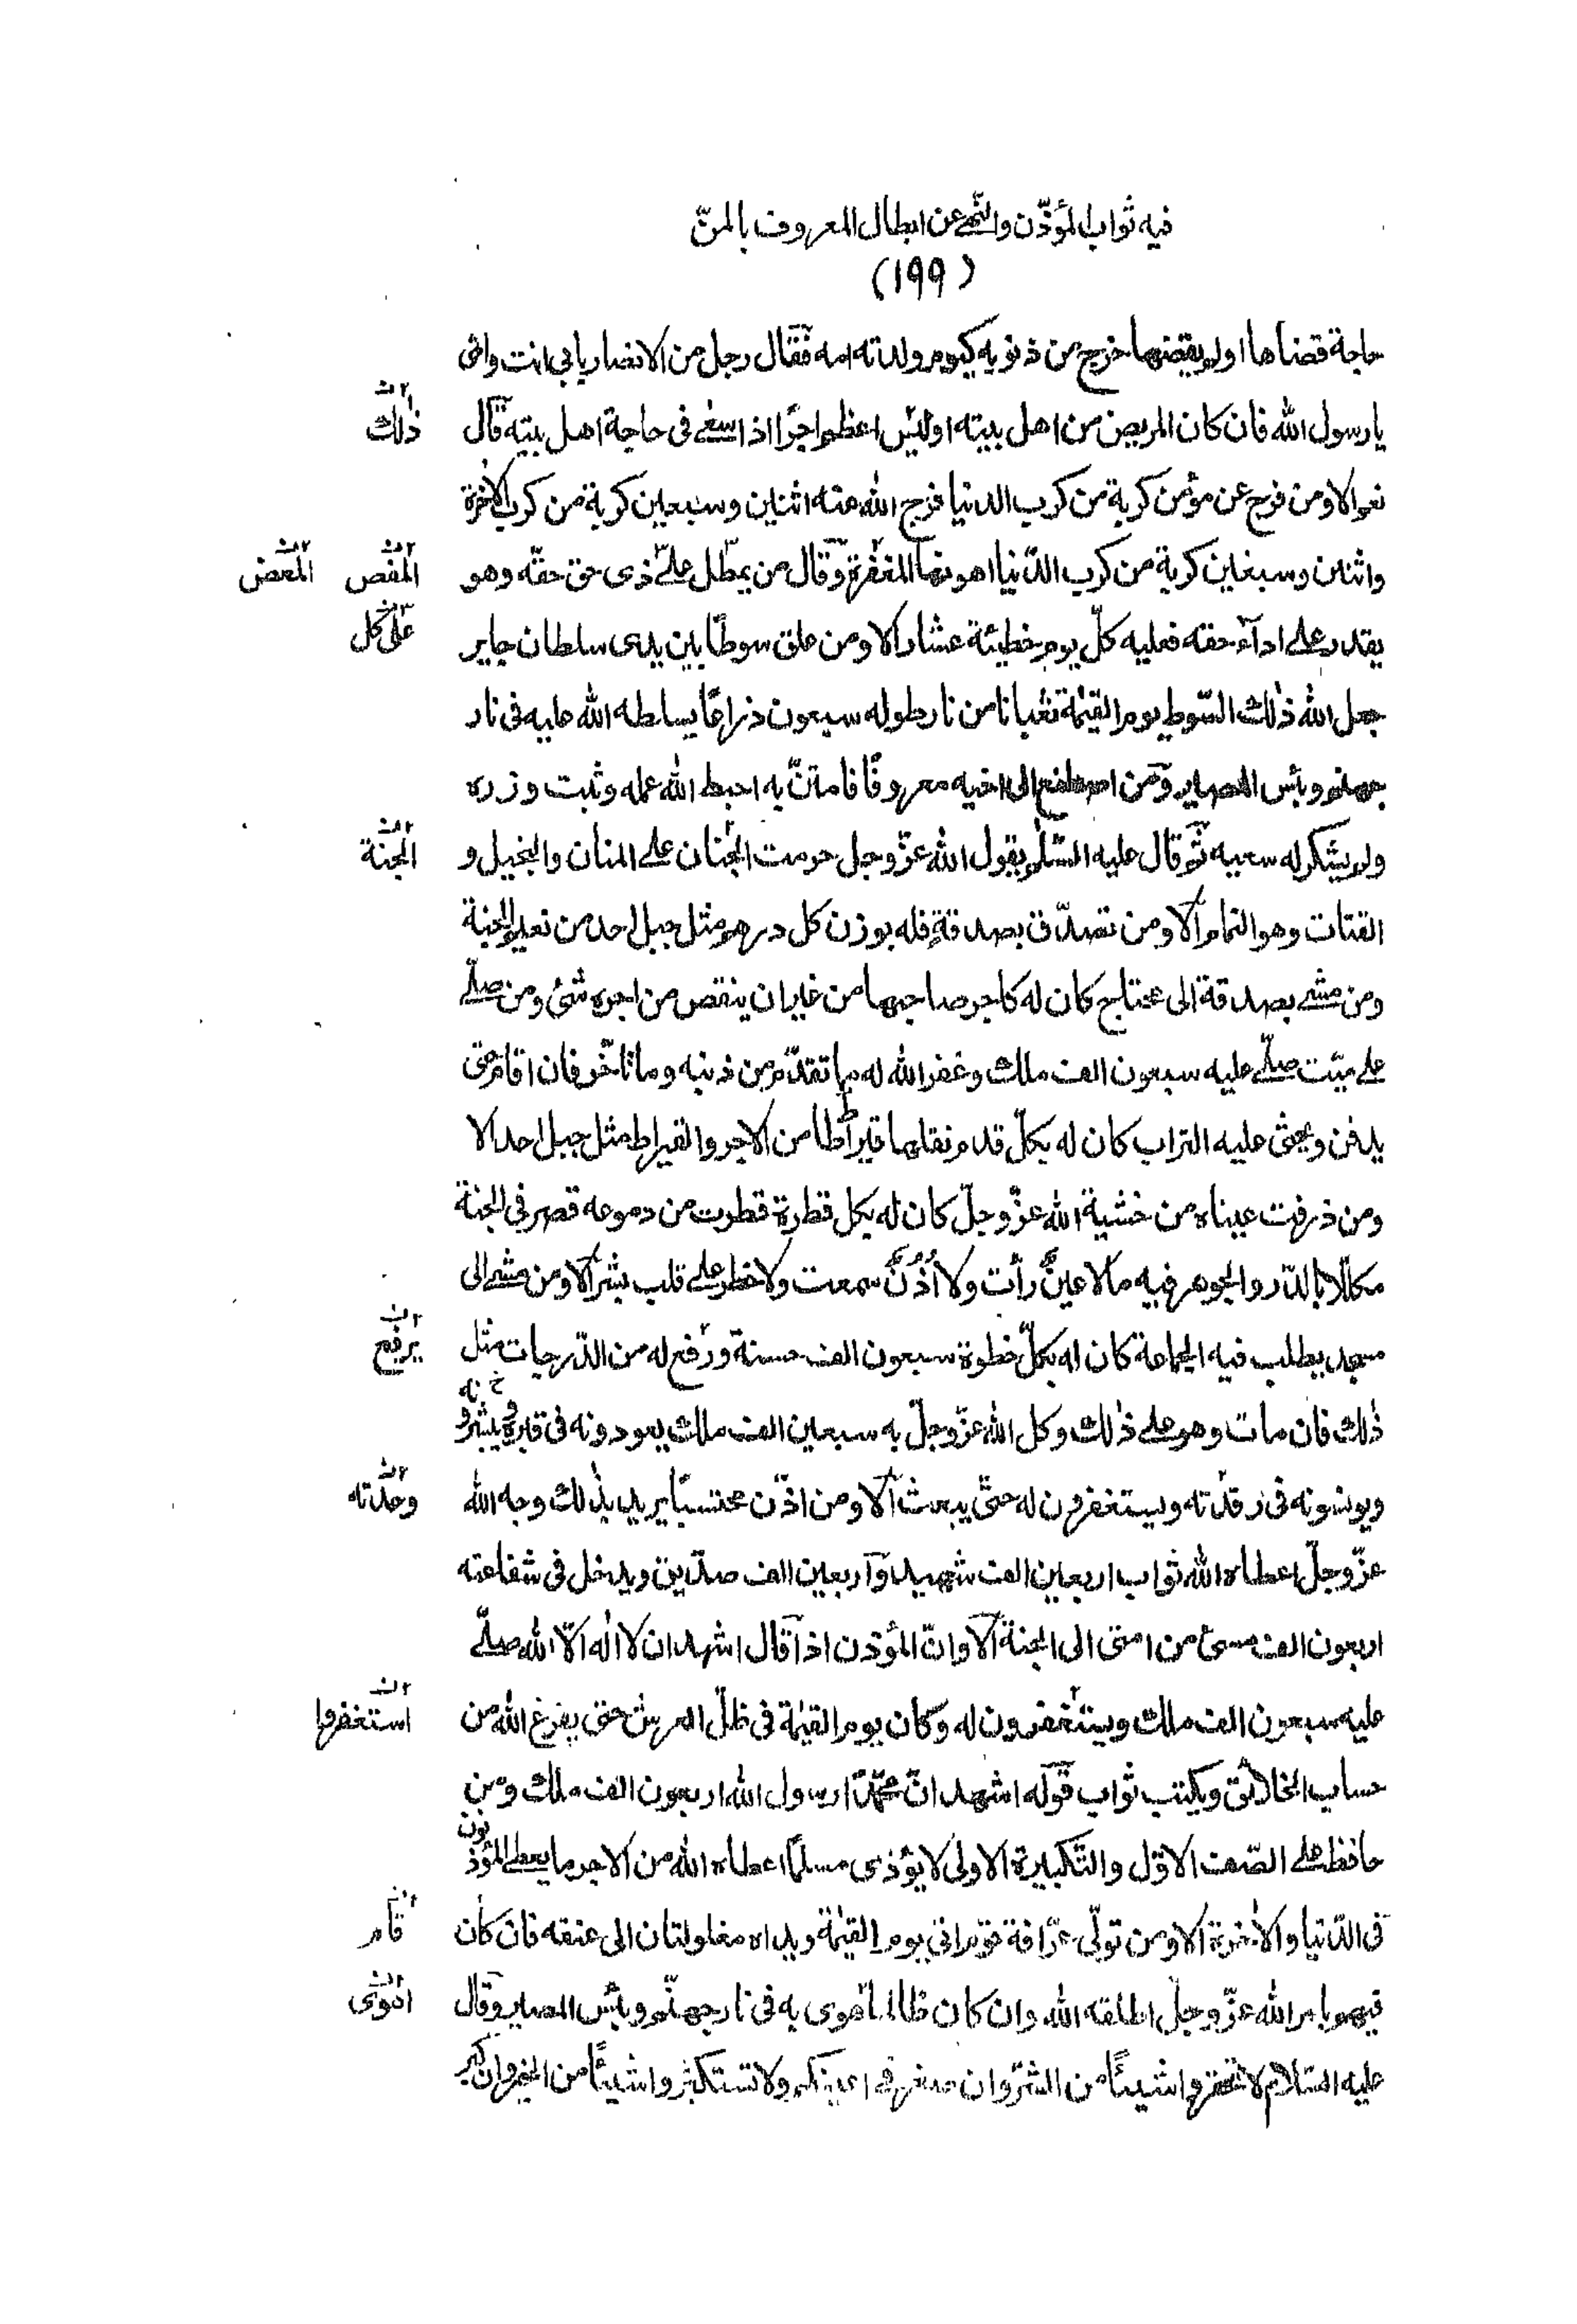 فيه ثواب المؤذّن والنّهى عن ابطال المعروف بالمنّ
(١٩٩)
حاجة قضاها او لم يقضها خرج من ذنوبه كيوم ولدته امه فقال رجل من الانصار يا بى انت وامى
يا رسول الله فان كان المريض من اهل بيته او ليس اعظم اجرًا اذا سعى فى حاجة اهل بيته قال
ذلك
نعم الا ومن فرج عن مؤمن كربة من كرب الدنيا فرج الله عنه اثنين وسبعين كربة من كرب الآخرة
واثنين وسبعين كربة من كرب الدّنيا اهونها المغفرة وقال من يمطل على ذى حق حقّه وهو
المغص المغض
يقدر على ادآء حقه فعليه كلّ يوم خطيئة عشار الا ومن علق سوطًا بين يدى سلطان جاير
على كل
جعل الله ذلك السّوط يوم القيمة ثعبانا من نار طوله سبعون ذراعًا يسلطه الله عليه فى نار
جهنم وبئس المصير ومن اصطنع الى اخيه معروفًا فامتنّ به احبط الله عمله وثبت وزره
ولم يشكر له سعيه ثم قال عليه السّلم يقول الله عزّ وجل حرمت الجنان على المنان والبخيل و
الجنة
القتات وهو النمام الا ومن تصدّق بصدقة فله بوزن كل درهم مثل جبل احد من نعيم الجنة
ومن مشى بصدقة الى محتاج كان له كاجر صاحبها من غير ان ينقص من اجره شئ ومن صلّى
على ميّت صلّى عليه سبعون الف ملك وغفر الله له ما تقدّم من ذنبه وما تاخّر فان اقام حتى
يدفن ويحثى عليه التراب كان له بكلّ قدم نقلها قيراطا من الاجر والقيراط مثل جبل احد الا
ومن ذرفت عيناه من خشية الله عزّ وجلّ كان له بكل قطرة قطرت من دموعه قصر فى الجنة
مكلّلا بالدّر والجوهر فيه ما لا عينٌ رأت ولا اُذُنٌ سمعت ولا خطر على قلب بشر الا ومن مشى الى
مسجد يطلب فيه الجماعة كان له بكلّ خطوة سبعون الف حسنة ورفع له من الدّرجات مثل
يرفع
ذلك فان مات وهو على ذلك وكل الله عزّ وجلّ به سبعين الف ملك يعودونه فى قبره ويبشرو
نه خ
ويونسونه فى رقدته ويستغفرون له حتّى يبعث الا ومن اذّن محتسبًا يريد بذلك وجه الله
وحدته
عزّ وجلّ اعطاه الله ثواب اربعين الف شهيد واربعين الف صدّيق ويدخل فى شفاعته
اربعون الف مسئ من امتى الى الجنة الا وانّ المؤذن اذا قال اشهد ان لا اله الّا الله صلّى
عليه سبعون الف ملك ويستغفرون له وكان يوم القيمة فى ظلّ العرش حتى يفرغ الله من
استغفروا
حساب الخلائق ويكتب ثواب قوله اشهد انّ محمّدًا رسول الله اربعون الف ملك ومن
حافظ على الصّف الاوّل والتكبيرة الاولى لا يؤذى مسلمًا اعطاه الله من الاجر ما يعطى المؤذ
نون
فى الدّنيا والآخرة الا ومن تولّى عرّافة قوم اتى يوم القيمة ويداه مغلولتان الى عنقه فان كان
قام
فيهم بامر الله عزّ وجلّ اطلقه الله وان كان ظالما هوى به فى نار جهنّم وبئس المصير وقال
عليه السّلام لا تحقروا شيئًا من الشرّ وان صغر فى اعينكم ولا تستكثروا شيئًا من الخير وان كبر